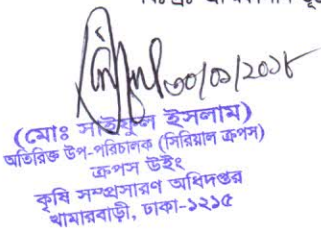 ৩০/০১/২০১৮
(মোঃ সাইফুল ইসলাম)
অতিরিক্ত উপ-পরিচালক (সিরিয়াল ক্রপস)
ক্রপস উইং
কৃষি সম্প্রসারণ অধিদপ্তর
খামারবাড়ী, ঢাকা-১২১৫